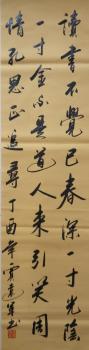 讀書不覺已春深一寸光陰
一寸金不是道人來引笑周
情孔思正追尋丁酉年